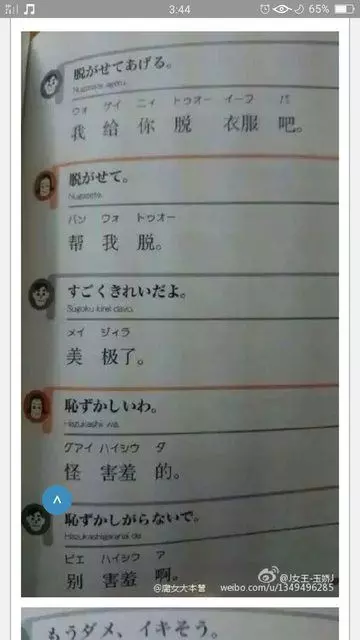 3:44
65%
脱がせてあげる。
Nugasete ageru.
ウォ ゲイ ニィ トゥオー イーフ バ
我 给 你 脱 衣服 吧。
脱がせて。
Nugasete.
バン ウォ トゥオー
帮 我 脱。
すごくきれいだよ。
Sugoku kirei dayo.
メイ ジィラ
美 极了。
恥ずかしいわ。
Hazukashii wa.
グアイ ハイシウ ダ
怪 害羞 的。
恥ずかしがらないで。
Hazukashigaranai de.
ビエ ハイシウ ア
别 害羞 啊。
@魔女大本营
@J女王-玉娇J
weibo.com/u/1349496285
もうダメ、イキそう。